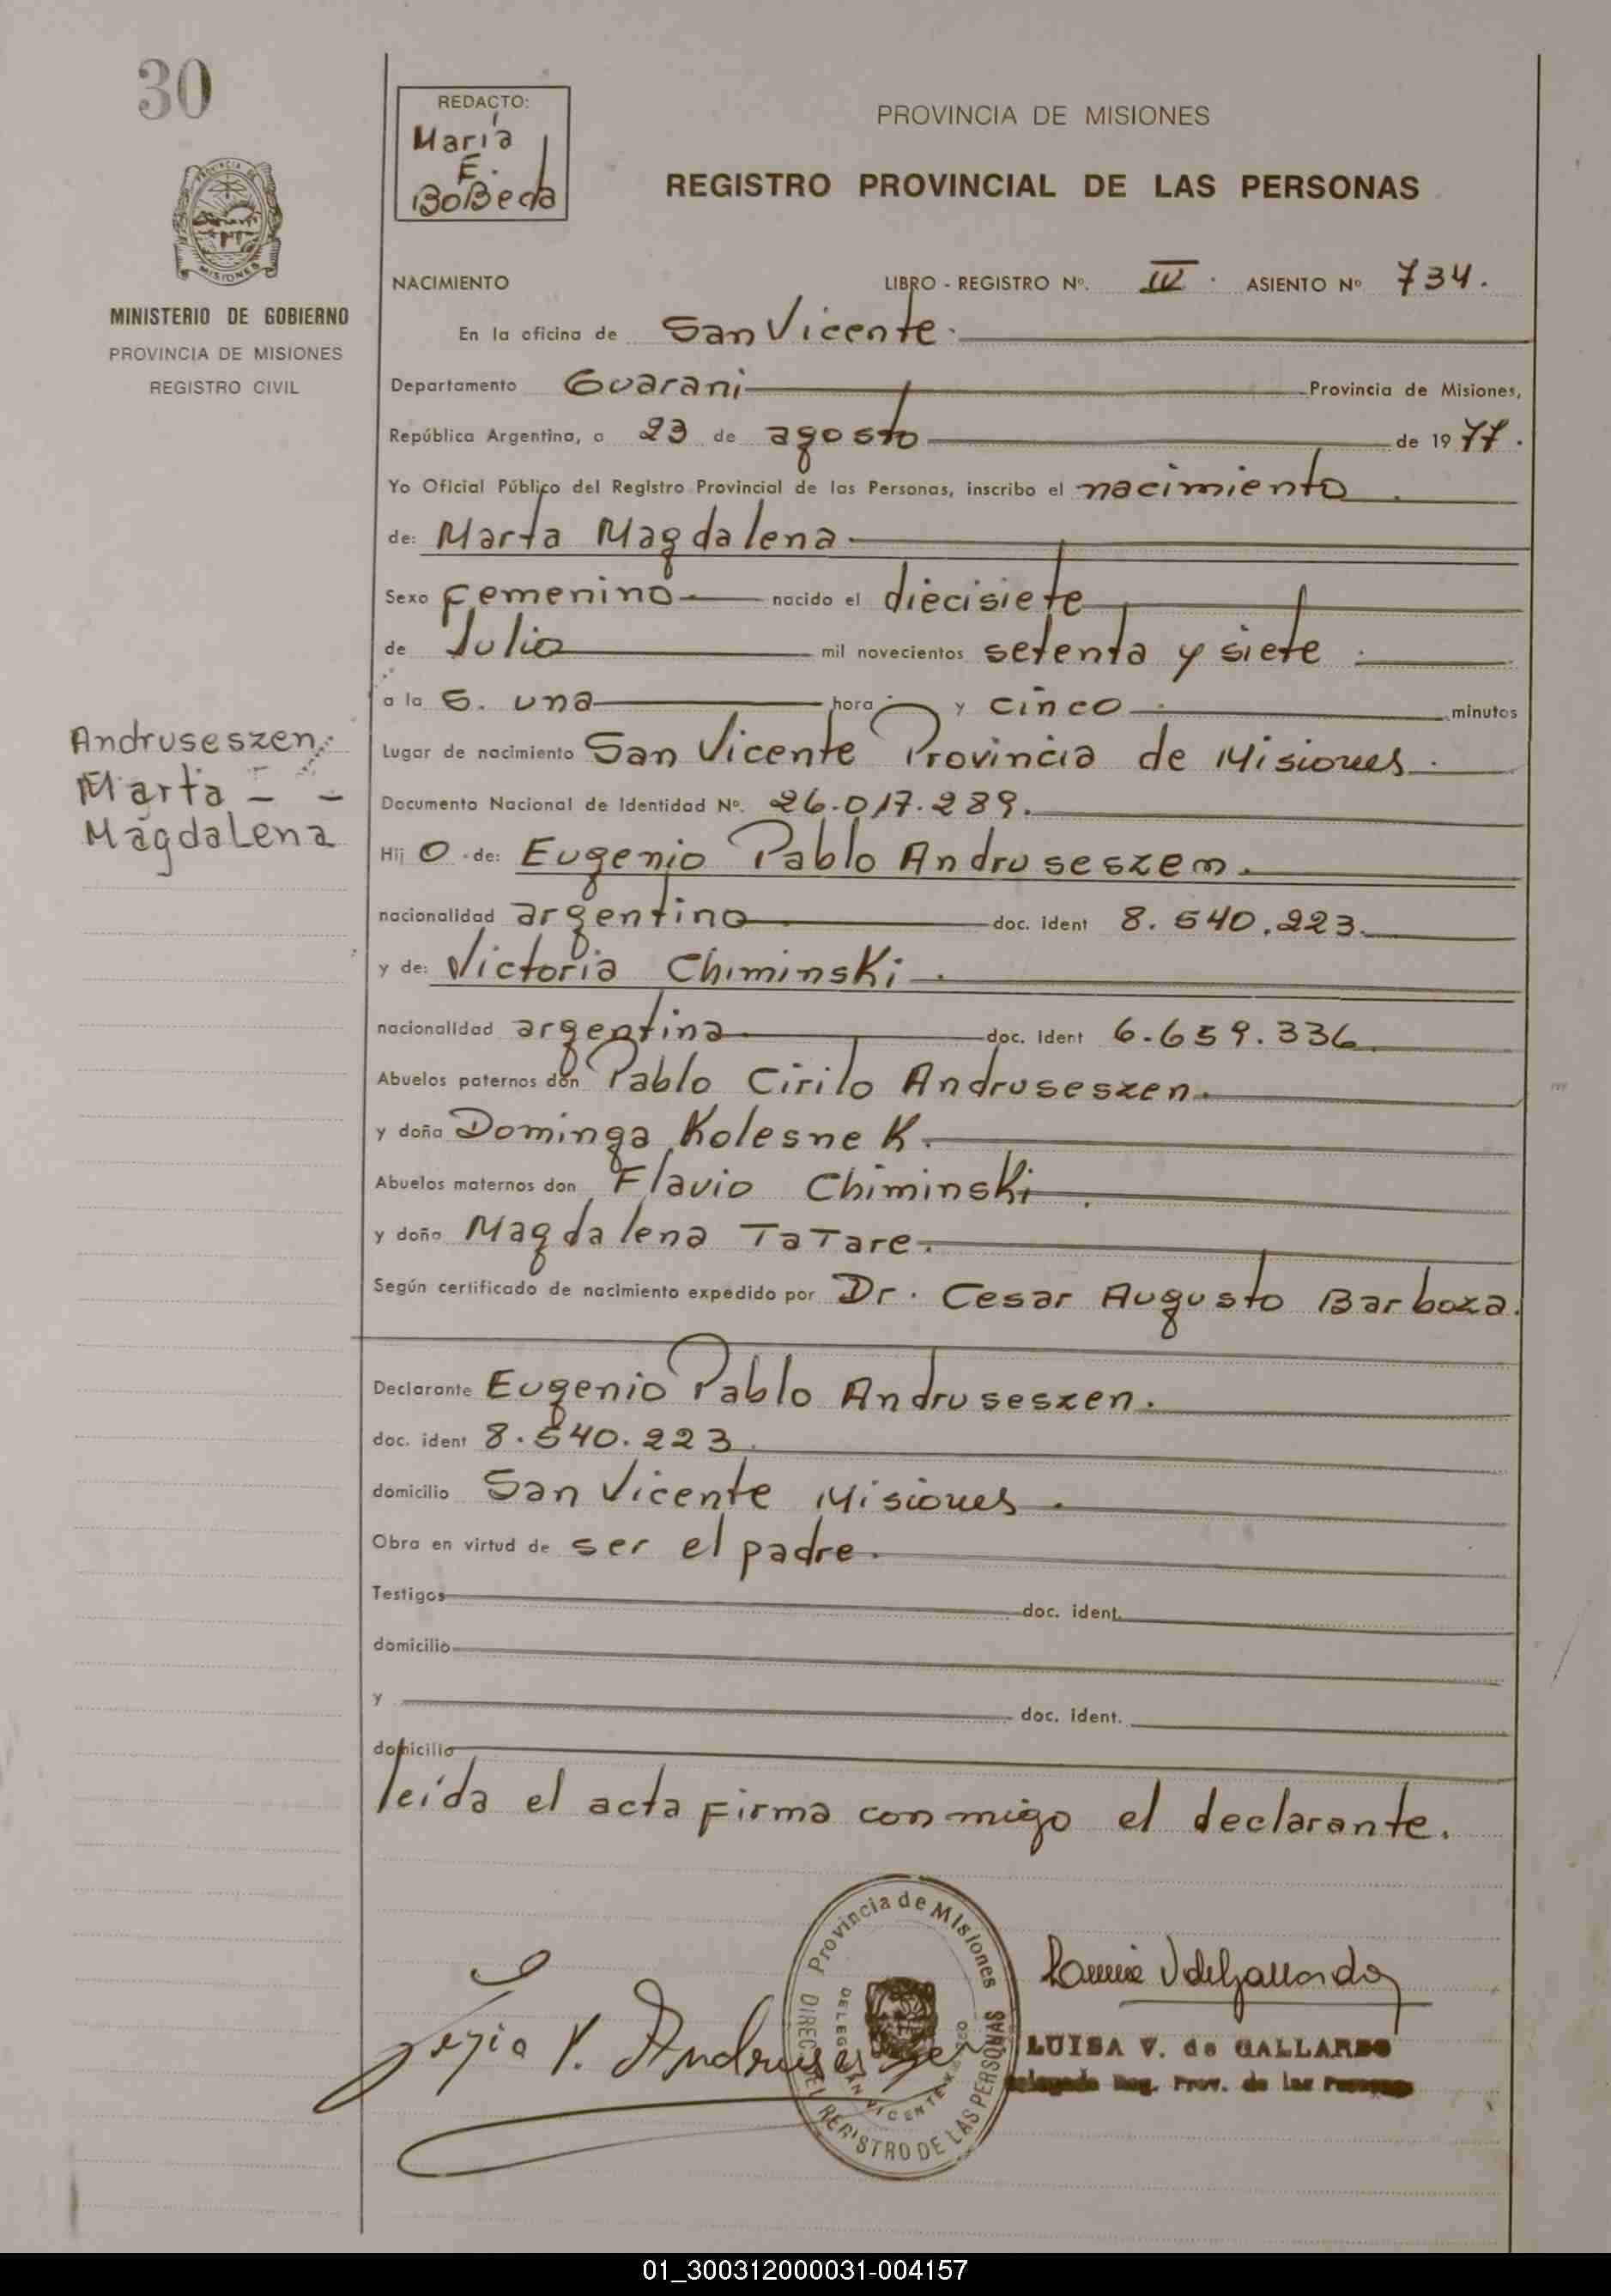 30
REDACTO:
María
E.
BoBeda
PROVINCIA DE MISIONES
REGISTRO PROVINCIAL DE LAS PERSONAS
PROVINCIA DE
MISIONES
MINISTERIO DE GOBIERNO
PROVINCIA DE MISIONES
REGISTRO CIVIL
NACIMIENTO LIBRO - REGISTRO Nº. IV. ASIENTO Nº 734.
En la oficina de San Vicente.
Departamento Guarani Provincia de Misiones,
República Argentina, a 23 de agosto de 1977.
Yo Oficial Público del Registro Provincial de las Personas, inscribo el nacimiento.
de: Marta Magdalena
Sexo femenino nacido el diecisiete
de Julio mil novecientos setenta y siete.
a la s. una hora y cinco minutos
Lugar de nacimiento San Vicente Provincia de Misiones.
Andruseszen
Marta - -
Magdalena
Documento Nacional de Identidad Nº. 26.017.289.
Hij o de: Eugenio Pablo Andruseszen.
nacionalidad argentino doc. ident 8.540.223.
y de: Victoria Chiminski.
nacionalidad argentina doc. ident 6.659.336.
Abuelos paternos don Pablo Cirilo Andruseszen.
y doña Dominga Kolesnek.
Abuelos maternos don Flavio Chiminski.
y doña Magdalena TaTare.
Según certificado de nacimiento expedido por Dr. Cesar Augusto Barboza.
Declarante Eugenio Pablo Andruseszen.
doc. ident 8.540.223.
domicilio San Vicente Misiones.
Obra en virtud de ser el padre.
Testigos doc. ident.
domicilio
y doc. ident.
domicilio
leída el acta firma conmigo el declarante.
Provincia de Misiones
DIREC. DEL REGISTRO DE LAS PERSONAS
SAN VICENTE
LUISA V. de GALLARDO
Delegada Reg. Prov. de las Personas
01_300312000031-004157